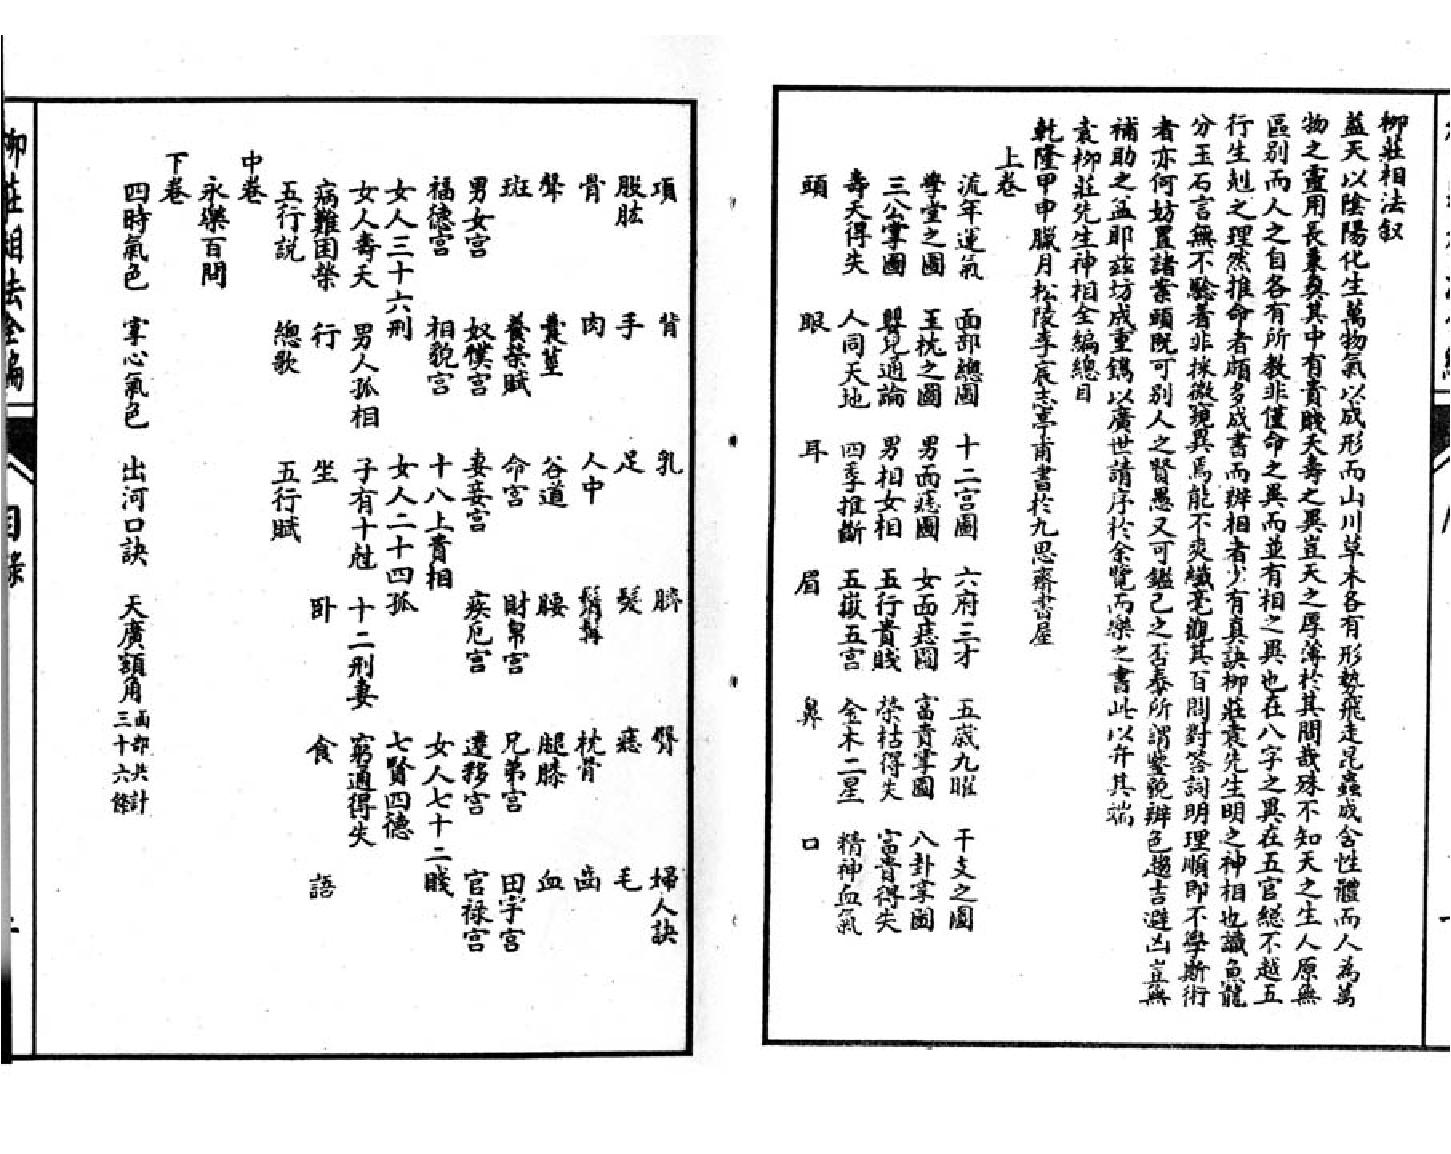 柳莊相法叙
蓋天以陰陽化生萬物氣以成形而山川草木各有形勢飛走昆蟲成含性體而人為萬
物之靈用長秉真其中有貴賤夭壽之異豈天之厚薄於其間哉殊不知天之生人原無
區別而人之自各有所教非僅命之異而並有相之異也在八字之異在五官總不越五
行生尅之理然推命者頗多成書而辨相者少有真訣柳莊袁先生明之神相也識魚龍
分玉石言無不驗者非採微窺異焉能不爽纖毫觀其百問對答詞明理順即不學斯術
者亦何妨置諸案頭既可別人之賢愚又可鑑己之否泰所謂鑒貌辨色趨吉避凶豈無
補助之益耶茲坊成重鐫以廣世請序於余覽而樂之書此以弁其端
袁柳莊先生神相全編總目
乾隆甲申臘月松陵李宸志亭甫書於九思齋書屋
上卷
流年運氣 面部總圖 十二宮圖 六府三才 五嶽九曜 干支之圖
學堂之圖 玉枕之圖 男面痣圖 女面痣圖 富貴掌圖 八卦掌圖
三公掌圖 嬰兒通論 男相女相 五行貴賤 榮枯得失 富貴得失
壽夭得失 人同天地 四季推斷 五嶽五宮 金木二星 精神血氣
頭 眼 耳 眉 鼻 口
項 背 乳 臍 臀 婦人訣
股肱 手 足 髮 痣 毛
骨 肉 人中 鬚髯 枕骨 齒
聲 囊莖 谷道 腰 腿膝 血
斑 養榮賦 命宮 財帛宮 兄弟宮 田宇宮
男女宮 奴僕宮 妻妾宮 疾厄宮 遷移宮 官祿宮
福德宮 相貌宮 十八上貴相 女人七十二賤
女人三十六刑 女人二十四孤 七賢四德
女人壽夭 男人孤相 子有十尅 十二刑妻 窮通得失
病難困榮 行 坐 卧 食 語
五行說 總歌 五行賦
中卷
永樂百問
下卷
四時氣色 掌心氣色 出河口訣 天廣額角 面部共計三十六條
柳莊相法全編 目錄 二